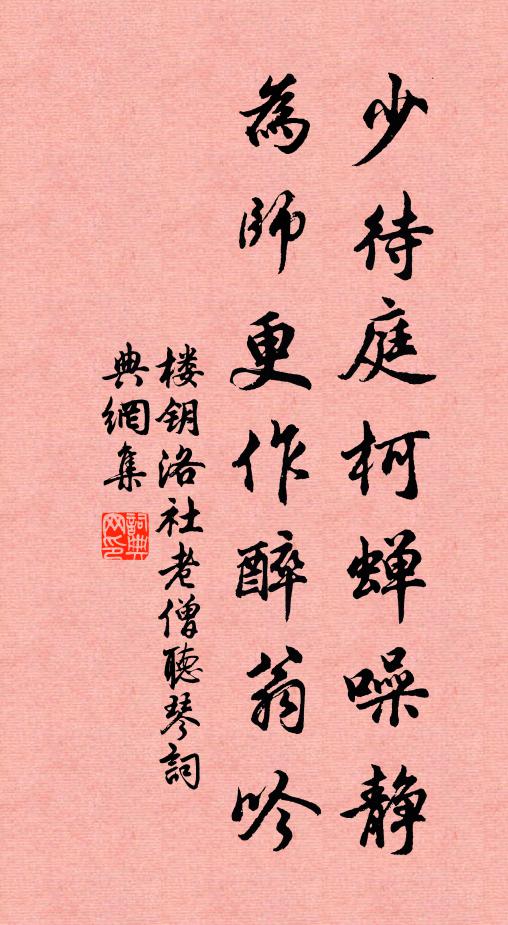 少待庭柯蝉噪静
為師更作醉翁吟
楼钥洛社老僧聽琴詞
典網集
詞典網印